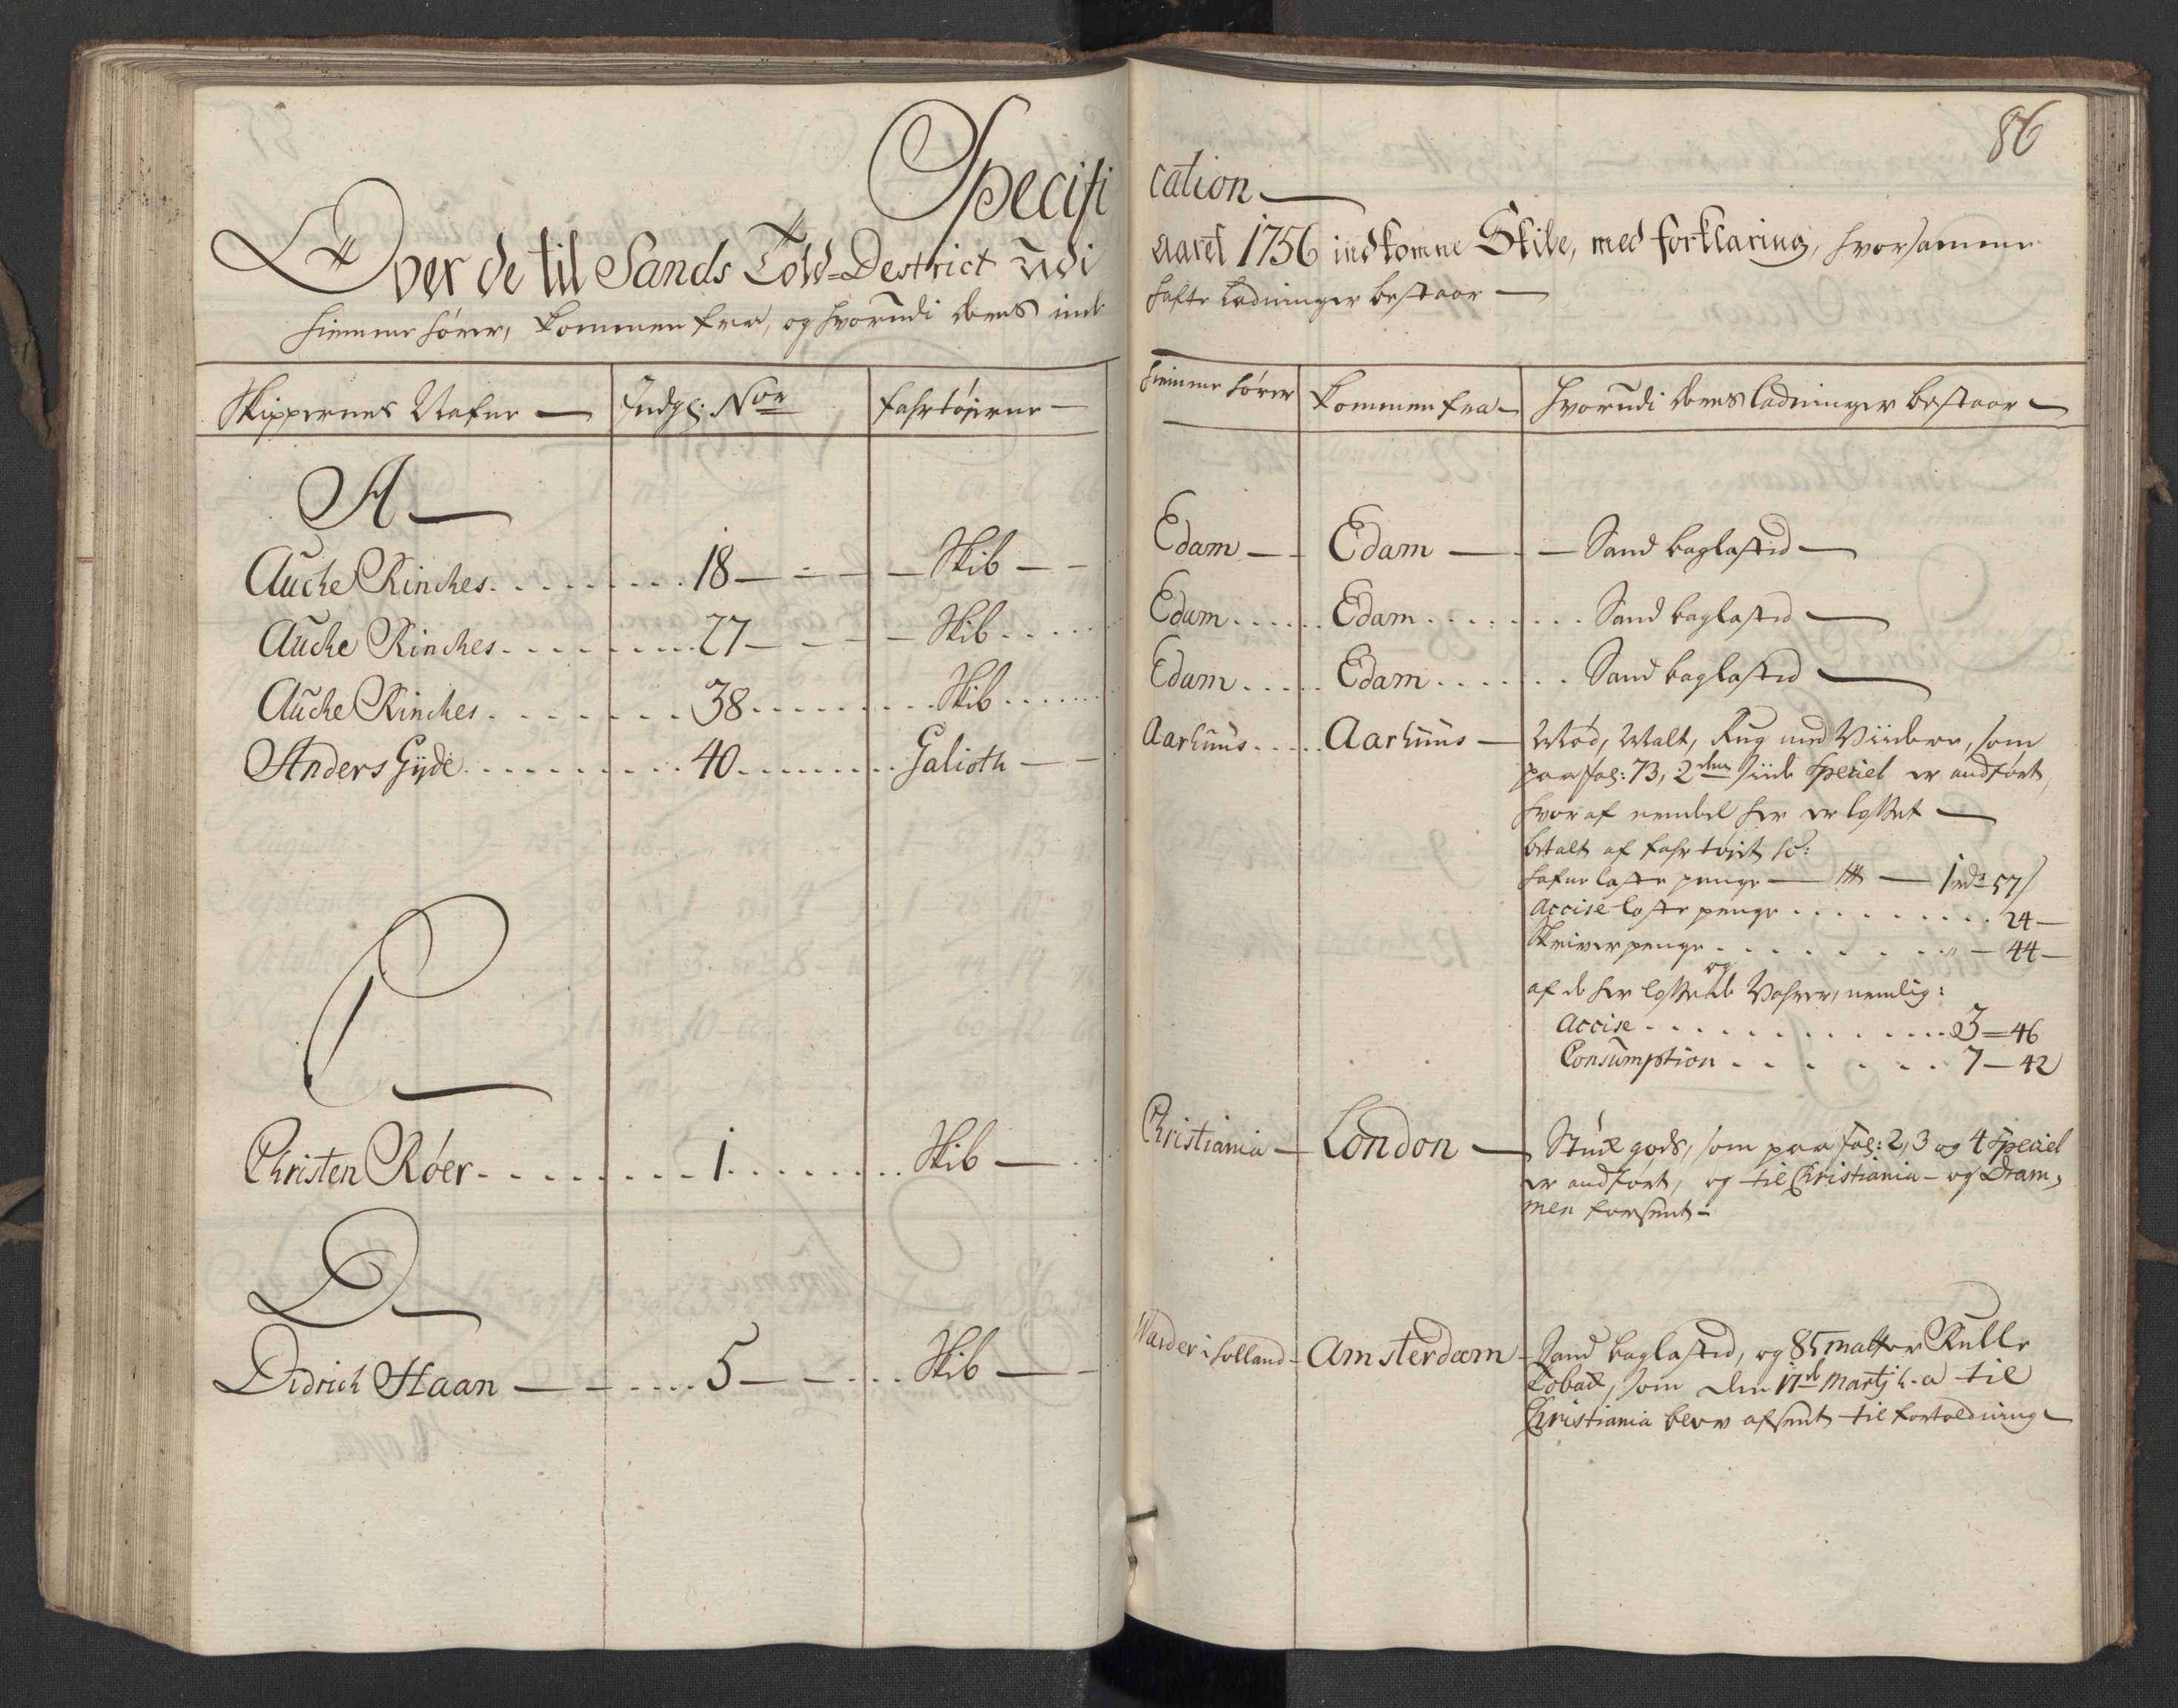 86
Specification
Over de til Sands Told-Destrict udi aaret 1756 indkomne Skibe, med forklaring, hvor samme
hiemme hører, kommen fra, og hvorudi deres inde hafte Ladninger bestaar
Skippernes Nafne Indgl: No̲r̲ Fahrtøjerne hiemme hører kommen fra hvorudi deres ladninger bestaar
A
Auche Rinches 18 Skib Edam Edam Sand baglasted
Auche Rinches 27 Skib Edam Edam Sand baglasted
Auche Rinches 38 Skib Edam Edam Sand baglasted
Anders Gyde 40 Galioth Aarhuus Aarhuus Miød, Malt, Rug med Viidere, som
paa fol: 73, 2den siide Speciel er andført,
hvoraf eendel her er losset
betalt af fahrtøjet so:
hafne laste penge 1 rd 57 s
Accise laste penge 24
Skriver penge " 44
af de her lossede og Vahrer, nemlig:
Accise 3 = 46
Consumption 7 - 42
C
Christen Röer 1 Skib Christiania London Stück gods, som paa fol: 2, 3 og 4 Speciel
er andført, og til Christiania og Dram,
men forsendt
D
Didrich Haan 5 Skib Warder i Holland Amsterdam Sand baglasted, og 85 matter Rulle
Toback, som den 17de Martj h. a til
Christiania blev afsendt til fortoldning